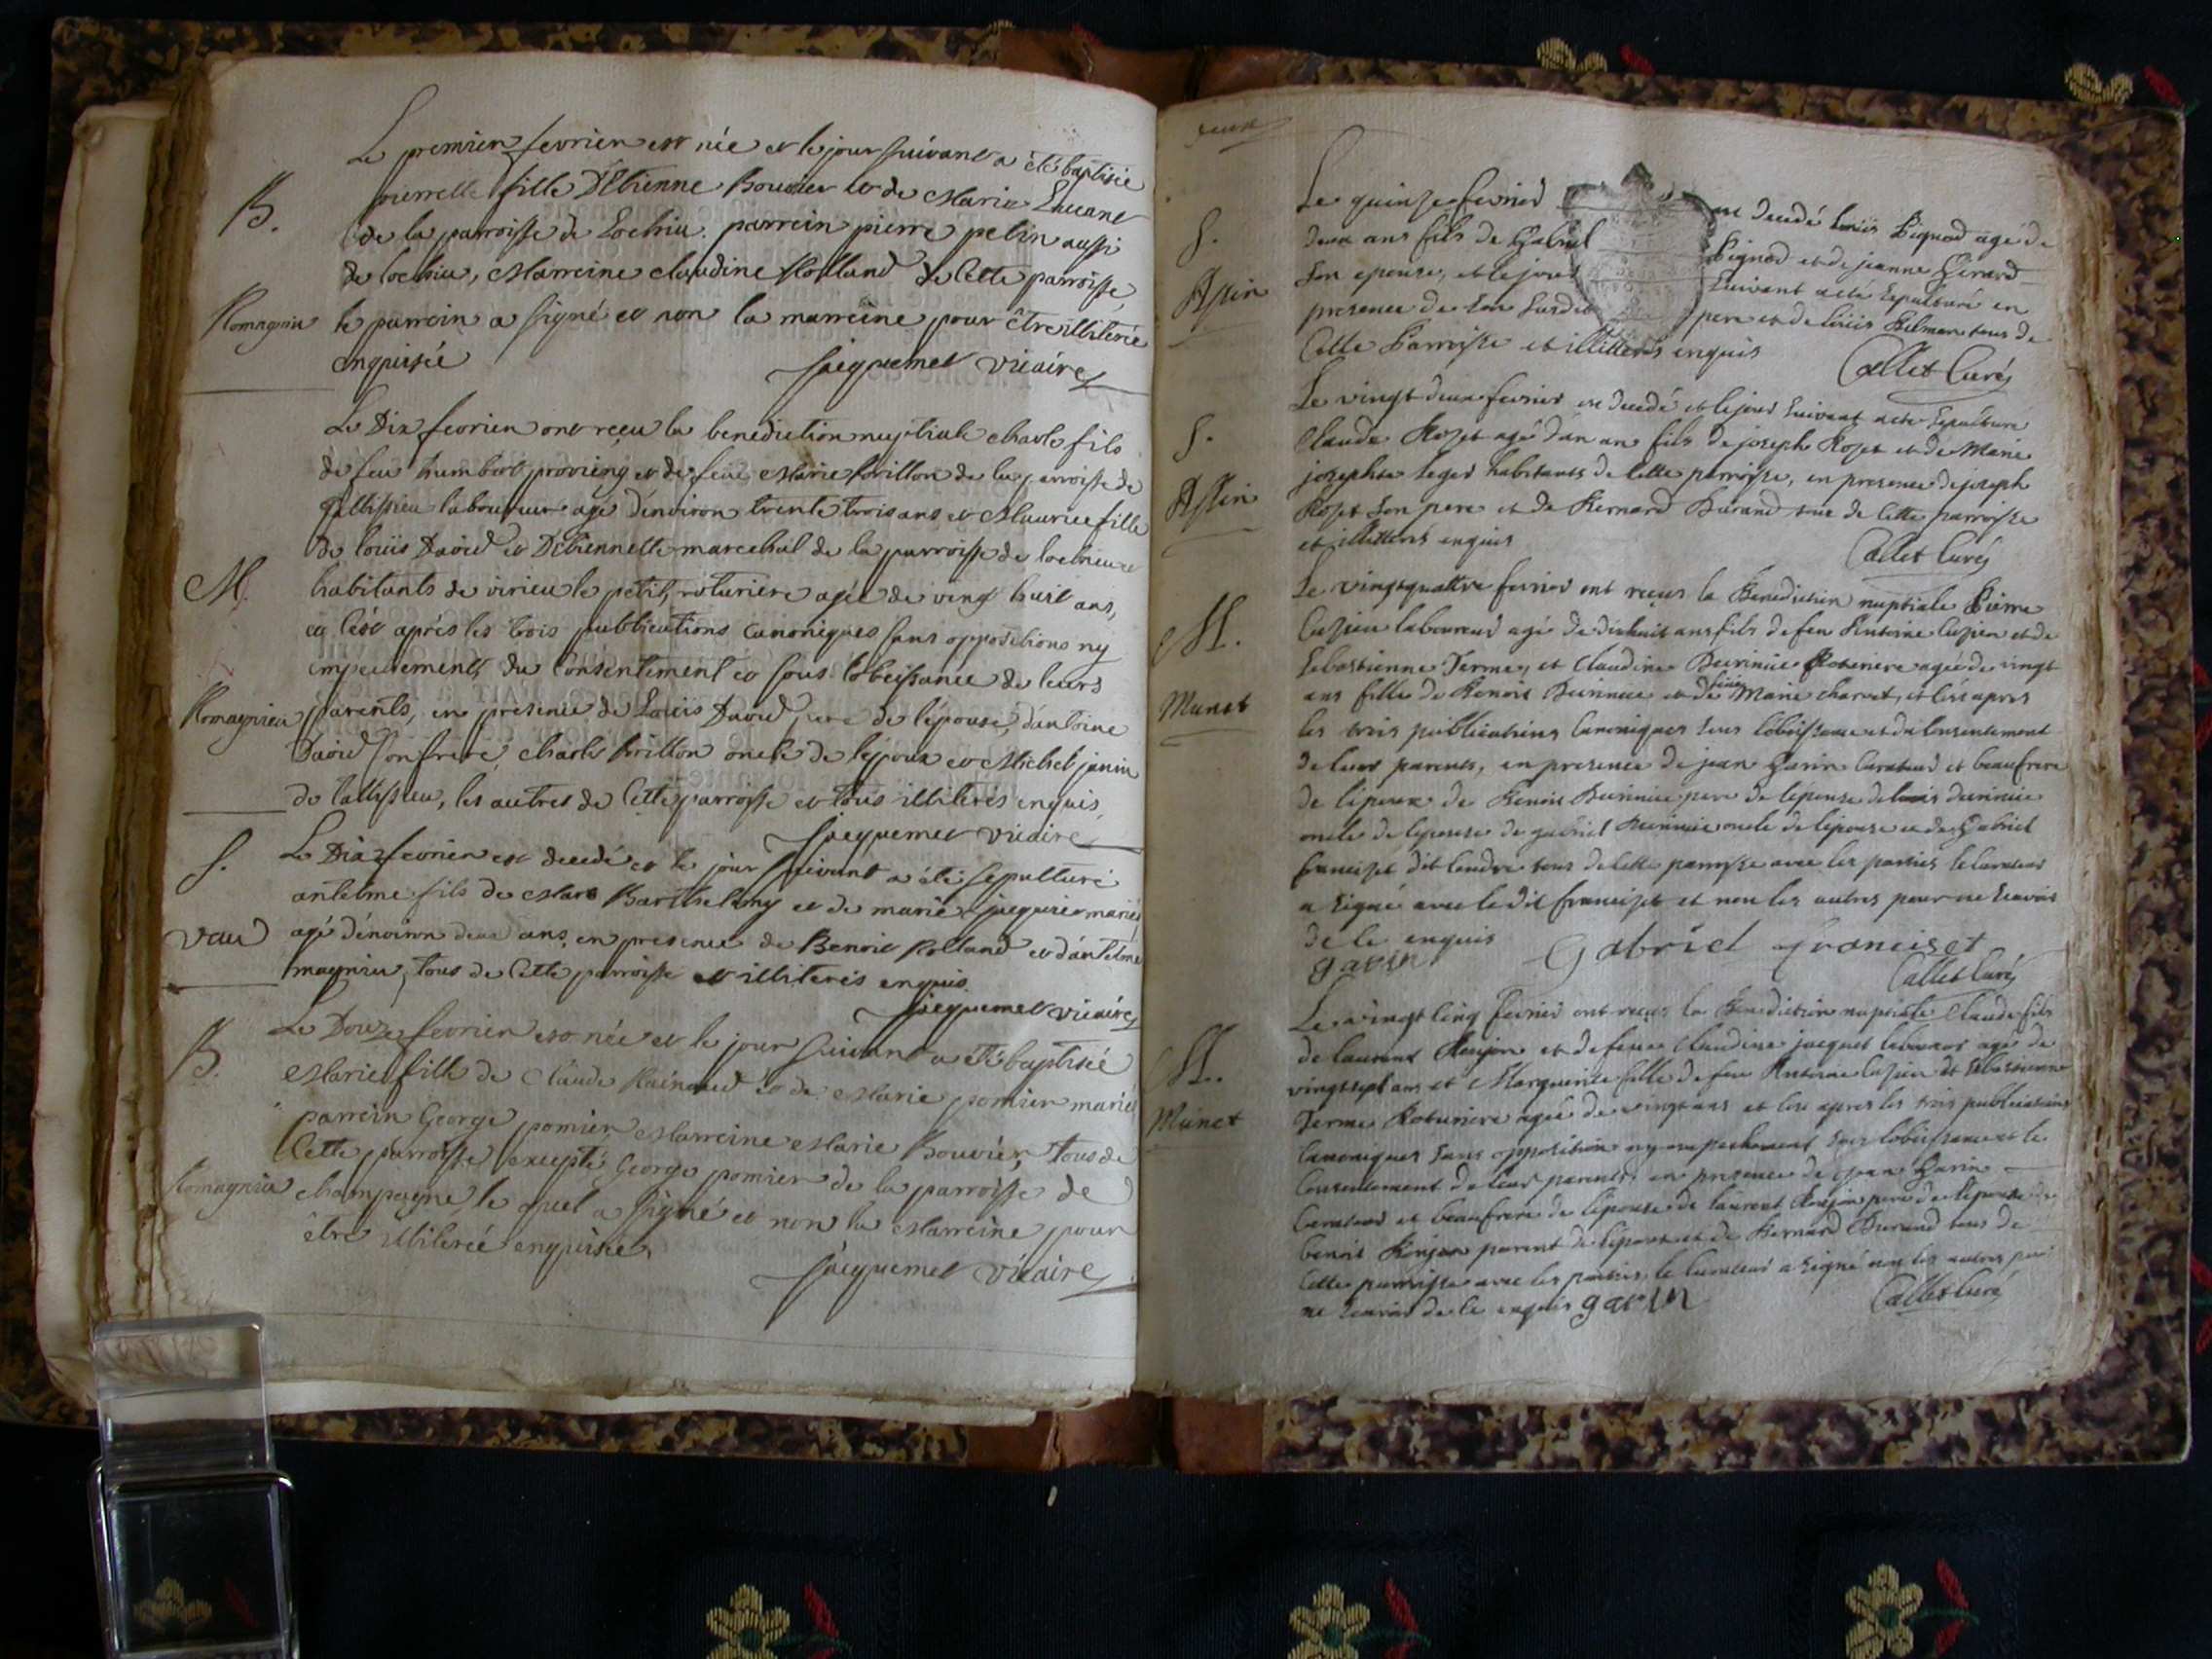 Le premier fevrier est née et le jour suivant a été baptisée
pierrette fille D'Etienne Bouvier et de Marie
B.
de la parroisse de Lochieu. parrein pierre pelin aussi
de lochieu, Marreine claudine Rolland de Cette parroisse,
Romagnieu
le parrein a signé et non la marreine pour être illiterée
enquisée
Jacquemet vicaire
Le Dix fevrier ont reçu la benediction nuptiale charle fils
de feu humbert et de feüe Marie brillon de la parroisse de
laboureur agé d'environ trente trois ans et Maurice fille
de loüis David et D'Etiennette marechal de la parroisse de lochieu et
M.
habitants de virieu le petit, roturiere agée de vingt huit ans,
et ce après les trois publications canoniques sans oppositions ny
empechements du Consentement et sous l'obeissance de leurs
Romagnieu
parents, en présence de Loüis David pere de l'épouse, d'antoine
David son frere, charle brillon oncle de l'époux et Michel janin
de les autres de Cette parroisse et tous illiterés enquis,
Jacquemet vicaire
S.
Le Dix fevrier est decedé et le jour suivant a été sepulturé
antelme fils de Marc Barthelemy et de marie mariés
vau
agé d'environ deux ans, en presence de Benoit Rolland et d'antelme
magnieu, tous de Cette parroisse et illiterés enquis.
Jacquemet vicaire
B.
Le Douze fevrier est née et le jour suivant a été baptisée
Marie fille de Claude et de Marie pomier mariés
parrein George pomier, Marreine Marie Bouvier, tous de
Cette parroisse excepté George pomier de la parroisse de
Romagnieu
champagne, le quel a signé et non la Marreine pour
être illiterée enquisée,
Jacquemet vicaire
Le quinze fevrier est decedé loüis Pignod agé de
S.
deux ans fils de Gabriel Pignod et de jeanne Gerard
Astin
son epouse, et le jour suivant a été sepulturé en
presence de son susdit pere et de loüis tous de
Cette Parroisse et illitterés enquis
Callet Curé
Le vingt deux fevrier est decedé et le jour suivant a été sepulturé
S.
Claude Rozet agé d'un an fils de joseph Rozet et de Marie
josephte leger habitants de Cette parroisse, en presence de joseph
Astin
Rozet son pere et de Bernard Durand tous de Cette parroisse
et illitterés enquis
Callet Curé
Le vingtquattre fevrier ont reçus la Benediction nuptiale Pierre
M.
Cuzieu laboureur agé de dixhuit ans fils de feu Antoine Cuzieu et de
Sebastienne Terme, et Claudine Roturiere agée de vingt
Munet
ans fille de Benoit et de feüe Marie charvet, et ce apres
les trois publications Canoniques sous l'obeissance et du Consentement
de leurs parents, en presence de jean Garin Curateur et beaufrere
de l'époux de Benoit pere de l'epouse de loüis
oncle de l'epouse de gabriel oncle de l'épouse et de Gabriel
franciset dit tous de Cette parroisse avec les parties le Curateur
a signé avec le dit franciset et non les autres pour ne scavoir
de ce enquis
garin
Gabriel franciset
Callet Curé
Le vingt Cinq fevrier ont reçus la Benediction nuptiale Claude fils
de laurent et de feüe Claudine jacquet laboureur agé de
M.
vingtsept ans et Marguerite fille de feu Antoine Cuzieu et Sebastienne
Munet
Terme Roturiere agée de vingt ans et ce apres les trois publications
Canoniques sans opposition ny empechement sous l'obeissance et le
Consentement de leurs parents, en presence de jean Garin
Curateur et beaufrere de l'épouse de laurent pere de l'epoux de
benoit parent de l'époux et de Bernard Durand tous de
Cette parroisse avec les parties, le Curateur a signé non les autres pour
ne scavoir de ce enquis garin
Callet Curé